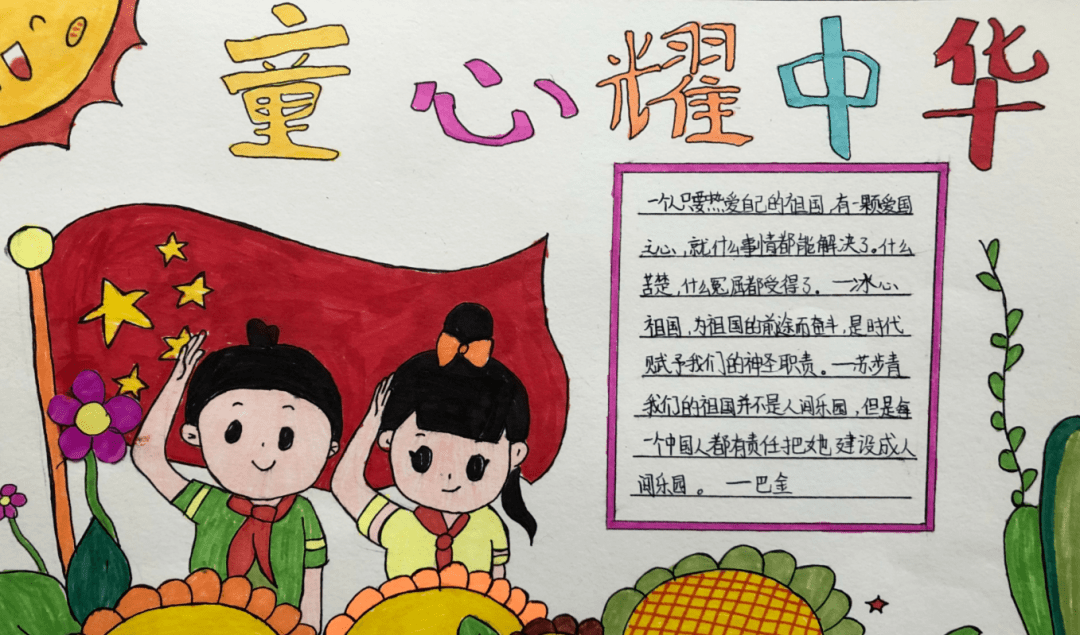 童心耀中华
一个人只要热爱自己的祖国,有一颗爱国
之心,就什么事情都能解决了。什么
苦楚,什么冤屈都受得了。——冰心
祖国,为祖国的前途而奋斗,是时代
赋予我们的神圣职责。——苏步青
我们的祖国并不是人间乐园,但是每
一个中国人都有责任把她建设成人
间乐园。——巴金